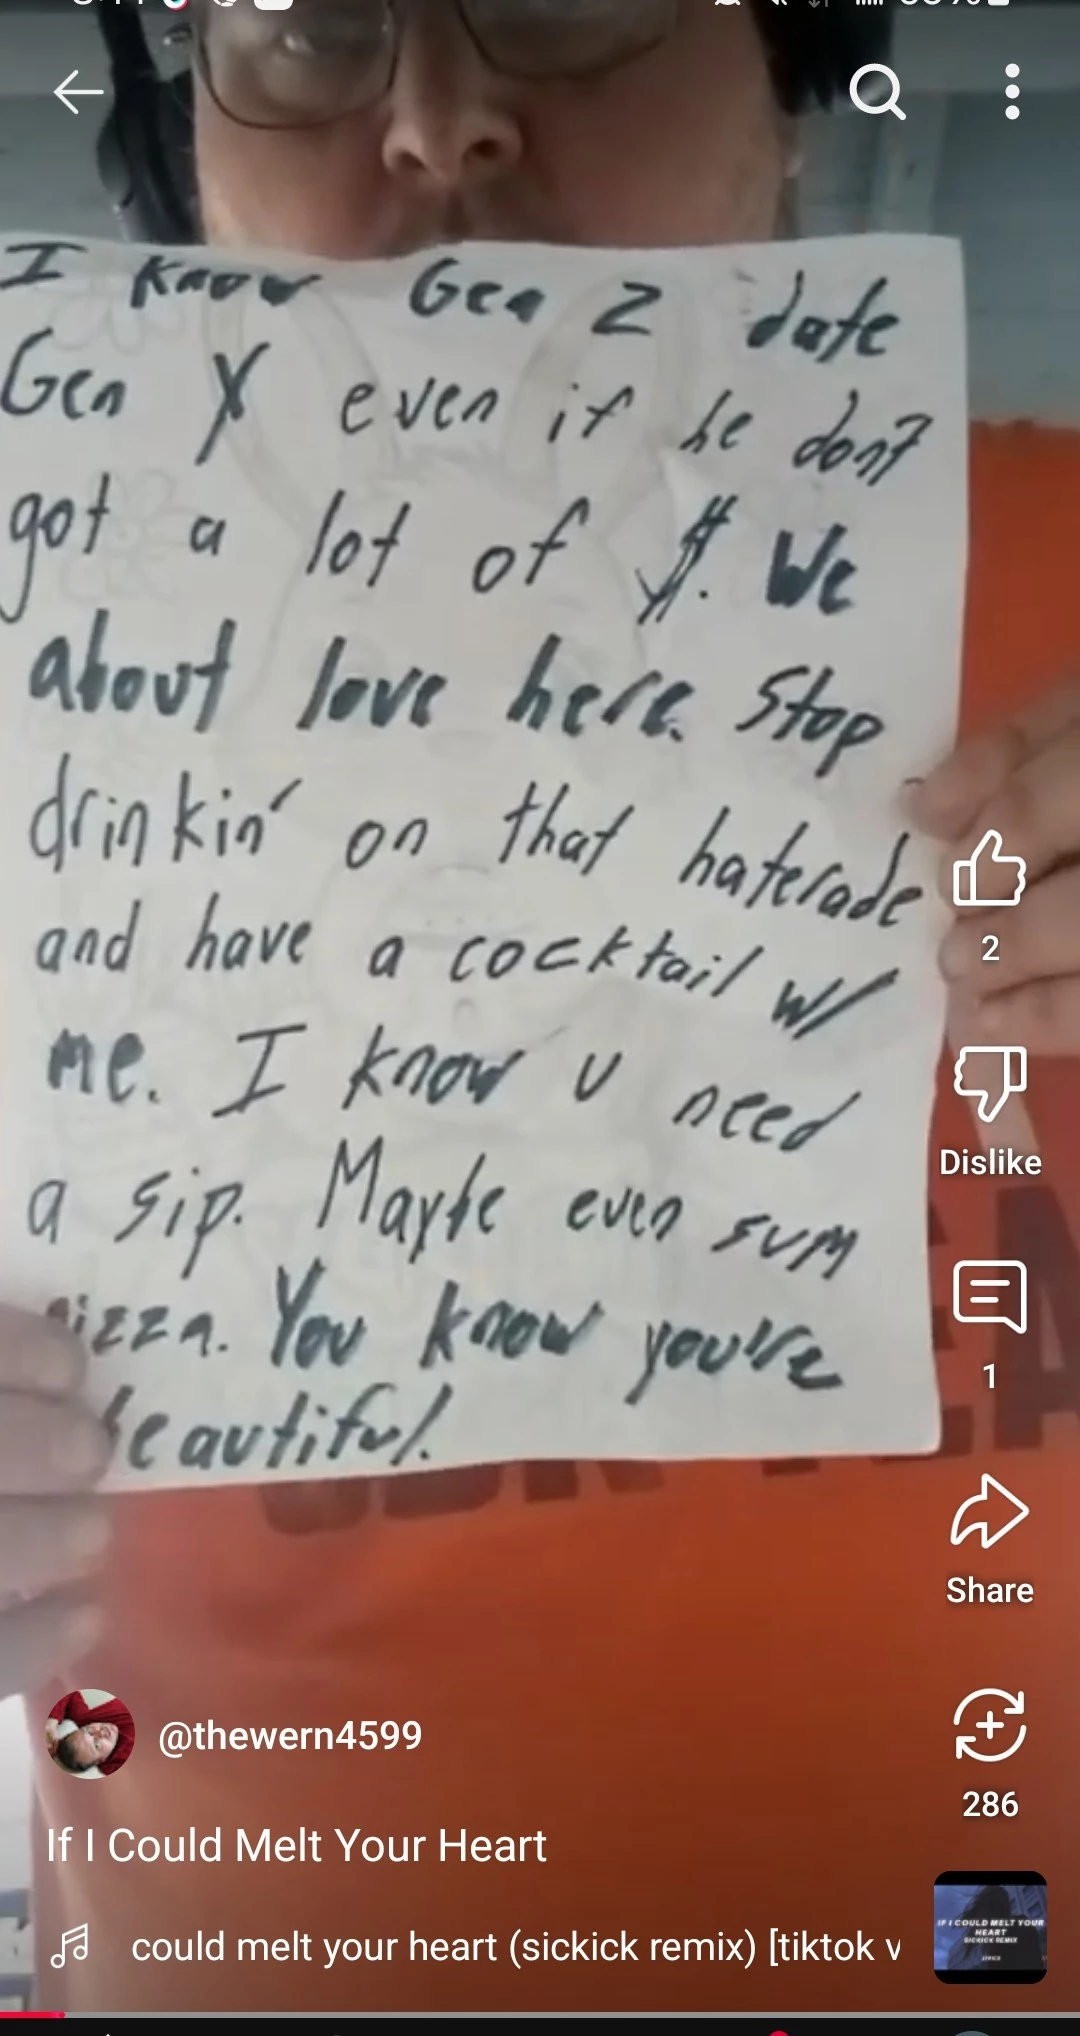 I know Gen Z date
Gen X even if he don't
got a lot of $. We
about love here. Stop
drinkin' on that haterade
and have a cocktail w/
me. I know u need
a sip. Maybe even sum
pizza. You know you're
beautiful.
2
Dislike
1
Share
@thewern4599
286
If I Could Melt Your Heart
could melt your heart (sickick remix) [tiktok v
IF I COULD MELT YOUR
HEART
SICKICK REMIX
LYRICS